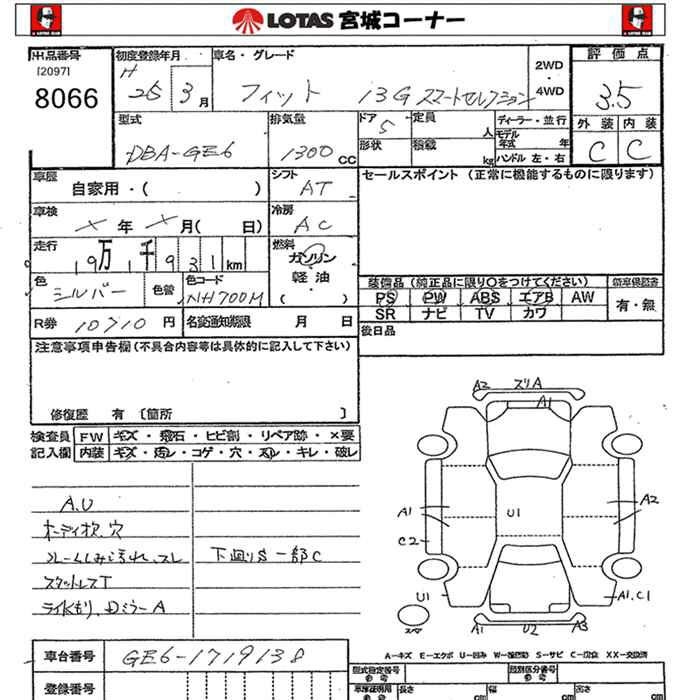 LOTAS 宮城コーナー
出品番号
[2097]
8066
初度登録年月
H 25 3月
車名・グレード
フィット 13G スマートセレクション
2WD
・
4WD
評価点
3.5
外装 内装
C C
型式
DBA-GE6
排気量
1300 CC
ドア
5
形状
定員
人
積載
kg
ディーラー・並行
モデル
年式 年
ハンドル 左・右
車歴
自家用・( )
シフト
AT
セールスポイント(正常に機能するものに限ります)
車検
年 月( 日)
冷房
AC
走行
19万1千931km
燃料
ガソリン
軽油
( )
色
シルバー
色替
色コード
NH700M
装備品(純正品に限り○をつけてください)
新車保証書
PS PW ABS エアB AW
SR ナビ TV カワ
有・無
R券 10710 円
名変通知期限 月 日
後日品
注意事項申告欄(不具合内容等は具体的に記入して下さい)
修復歴 有 [箇所 ]
検査員
記入欄
FW キズ・飛石・ヒビ割・リペア跡・×要
内装 キズ・汚レ・コゲ・穴・スレ・キレ・破レ
A.U
オーディオ欠、穴
シートしみ汚れ、スレ
スタットレスT
ライトくもり、DミラーA
下廻りS 一部C
A2 スリA
A1
A1
C2
U1
A2
U1
A1.C1
A1 U2 A3
A-キズ E-エクボ U-凹み W-補修跡 S-サビ C-腐食 XX-交換済
車台番号
GE6-1719138
登録番号
型式指定番号
参考
類別区分番号
参考
車庫証明用
参考
長さ
cm
幅
cm
高さ
cm